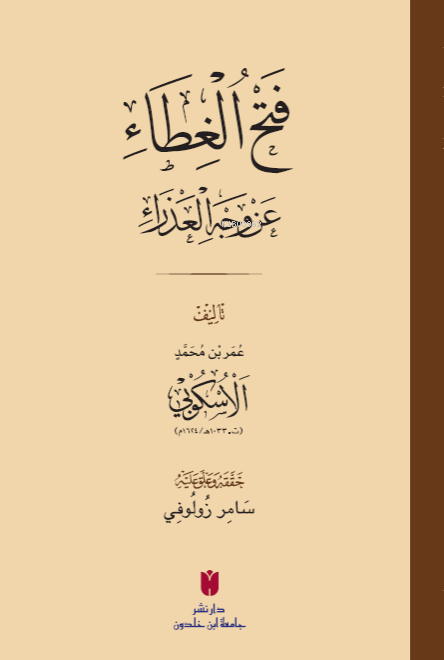 فَتْحُ الْغِطَاءِ
عَنْ وَجْهِ الْعَذْرَاءِ
تَأْلِيْفُ
عُمَر بْن مُحَمَّدٍ
الْأُسْكُوْبِيّ
(ت. ١٠٣٣هـ/١٦٢٤م)
حَقَّقَهُ وَعَلَّقَ عَلَيْهِ
سَامِر زُولُوفِي
دار نشر
جامعة ابن خلدون